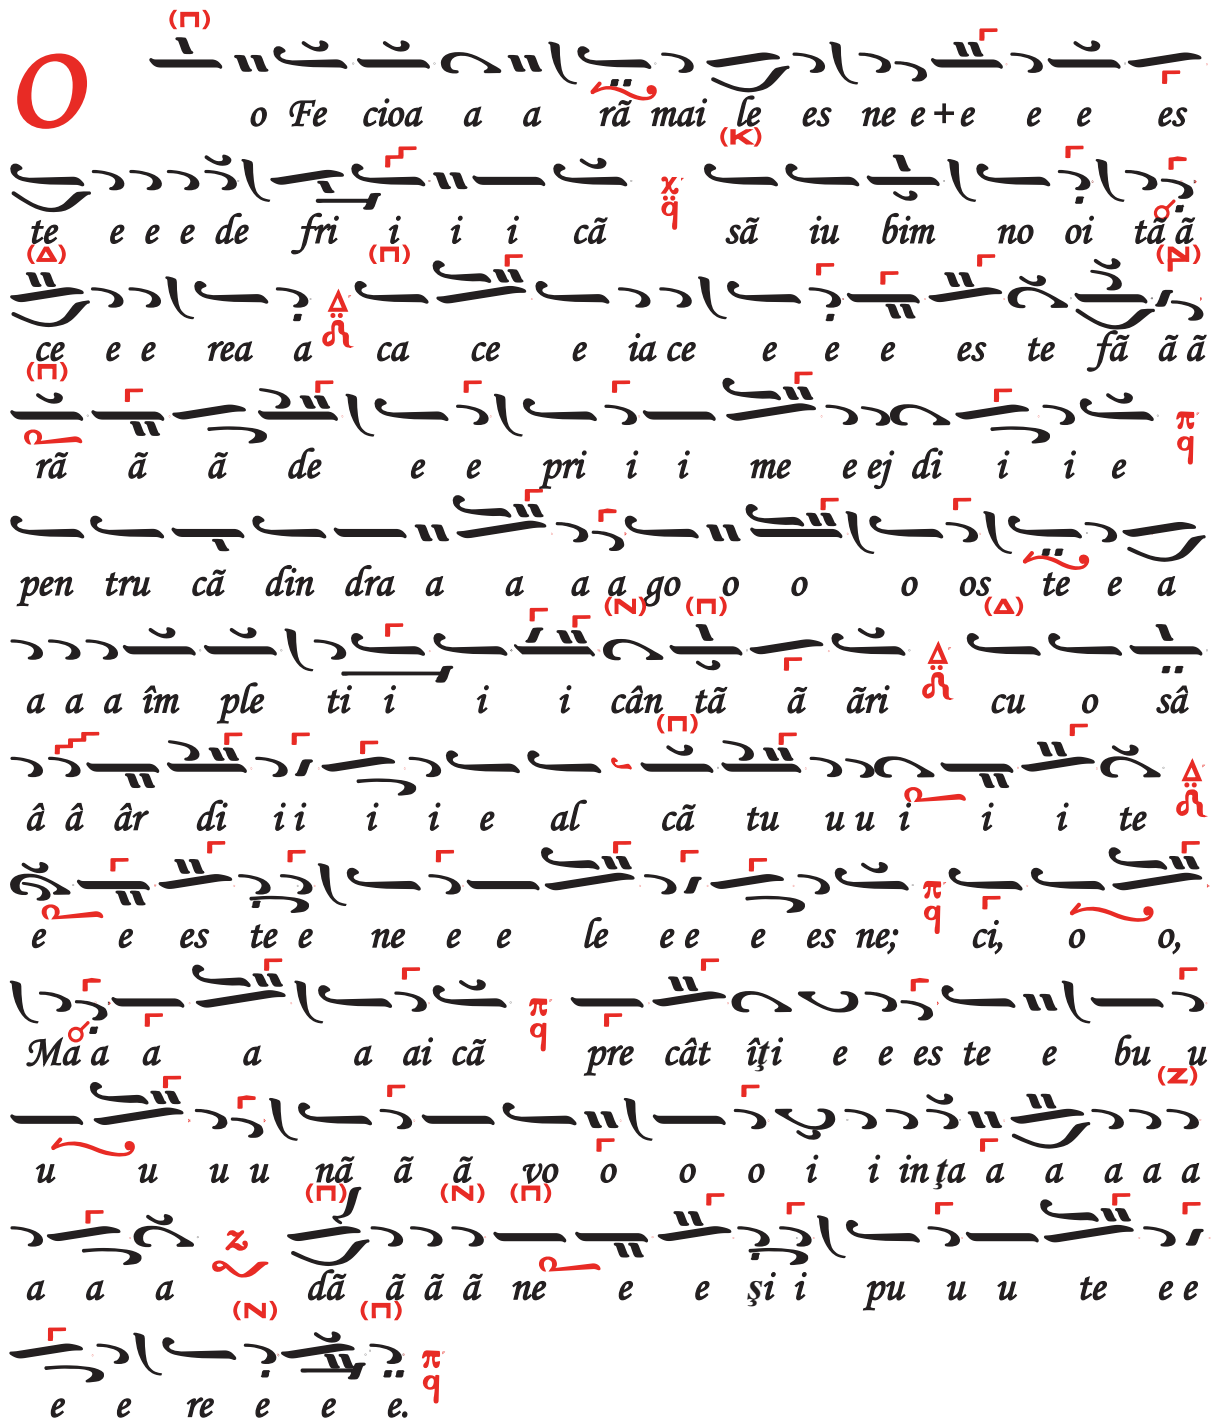 (Π)
O
o Fe cioa a a rã mai le es ne e+e e e es
(K)
te e e e de fri i i i cã χ q sã iu bim no oi tã ã
(Δ) (Π) (N)
ce e e rea a Δ ca ce e ia ce e e e es te fã ã ã
(Π)
rã ã ã de e e pri i i me e ej di i i e π q
pen tru cã din dra a a a a go o o o os te e a
(N) (Π) (Δ)
a a a îm ple ti i i i cân tã ã ãri Δ cu o sâ
(Π)
â â âr di i i i i e al cã tu u u i i i te Δ
e e es te e ne e e le e e e es ne; π q ci, o o,
Ma a a a a ai cã π q pre cât îţi e e es te e bu u
(Z)
u u u u nã ã ã vo o o o i i in ţa a a a a a
(Π) (N) (Π)
a a a z dã ã ã ã ne e e şi i pu u u te e e
(N) (Π)
e e re e e e. π q